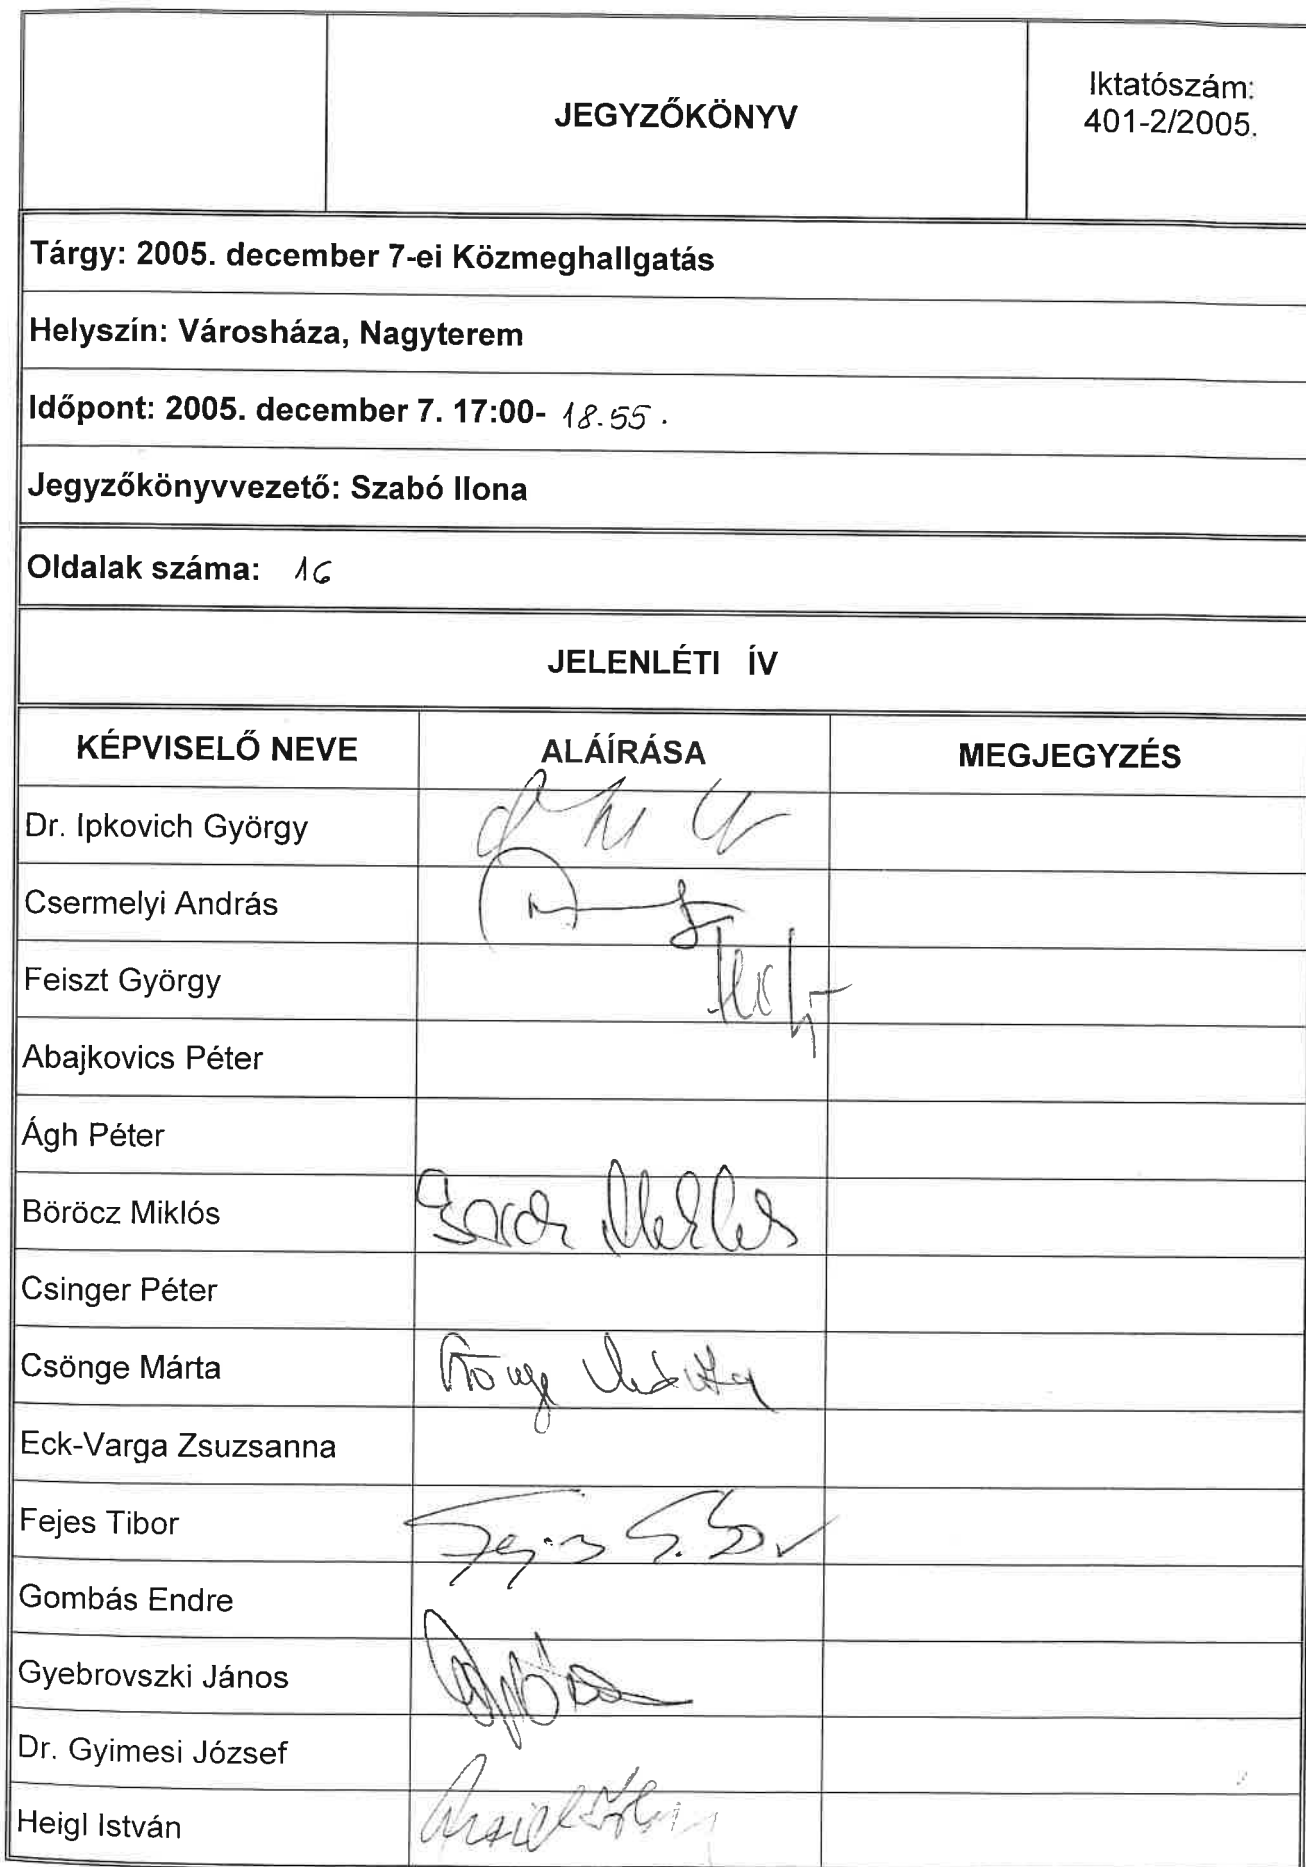 JEGYZŐKÖNYV
Iktatószám:
401-2/2005.
Tárgy: 2005. december 7-ei Közmeghallgatás
Helyszín: Városháza, Nagyterem
Időpont: 2005. december 7. 17:00- 18.55.
Jegyzőkönyvvezető: Szabó Ilona
Oldalak száma: 16
JELENLÉTI ÍV
KÉPVISELŐ NEVE ALÁÍRÁSA MEGJEGYZÉS
Dr. Ipkovich György
Csermelyi András
Feiszt György
Abajkovics Péter
Ágh Péter
Böröcz Miklós
Csinger Péter
Csönge Márta
Eck-Varga Zsuzsanna
Fejes Tibor
Gombás Endre
Gyebrovszki János
Dr. Gyimesi József
Heigl István